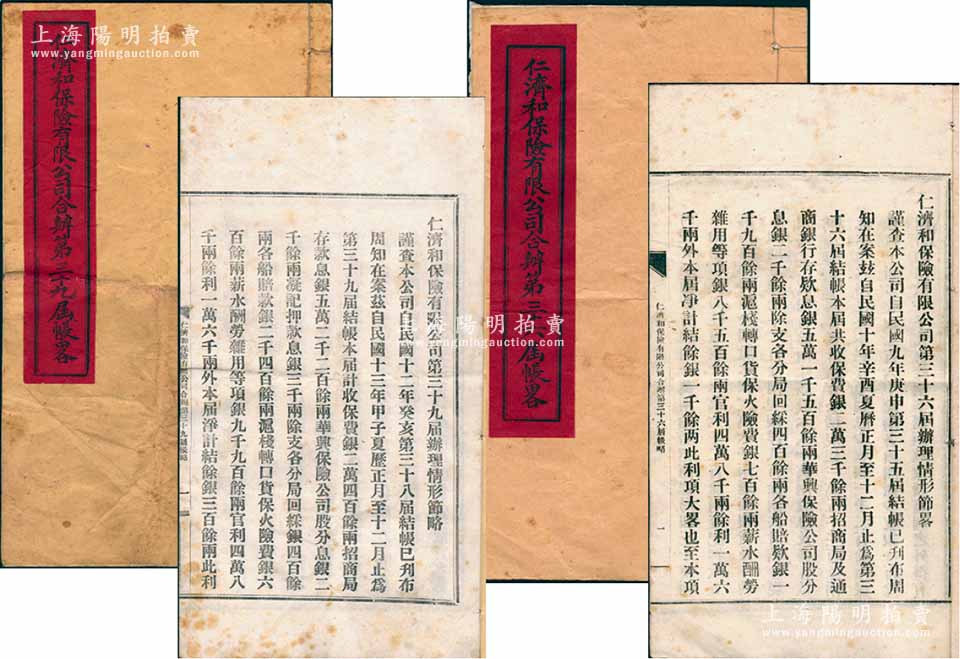 上海陽明拍賣
www.yangmingauction.com
仁濟和保險有限公司合辦第三十九屆帳畧
仁濟和保險有限公司第三十九屆辦理情形節略
謹查本公司自民國十二年癸亥第三十八屆結帳已刋布
周知在案茲自民國十三年甲子夏歷正月至十二月止爲
第三十九屆結帳本屆計收保費銀二萬四百餘兩招商局
存款息銀五萬二千二百餘兩華興保險公司股分息銀二
千餘兩凝記押款息銀三千兩除支各分局回綵銀四百餘
兩各船賠款銀二千四百餘兩滬棧轉口貨保火險費銀六
百餘兩薪水酬勞雜用等項銀九千九百餘兩官利四萬八
千兩餘利一萬六千兩外本屆淨計結餘銀三百餘兩此利
仁濟和保險有限公司合辦第三十九屆帳略
一
上海陽明拍賣
www.yangmingauction.com
仁濟和保險有限公司合辦第三十屆帳畧
仁濟和保險有限公司第三十六屆辦理情形節畧
謹查本公司自民國九年庚申第三十五屆結帳已刋布周
知在案茲自民國十年辛酉夏曆正月至十二月止爲第三
十六屆結帳本屆共收保費銀二萬三千餘兩招商局及通
商銀行存欵息銀五萬一千五百餘兩華興保險公司股分
息銀二千餘兩除支各分局回綵四百餘兩各船賠欵銀一
千九百餘兩滬棧轉口貨保火險費銀七百餘兩薪水酬勞
雜用等項銀八千五百餘兩官利四萬八千兩餘利一萬六
千兩外本屆淨計結餘銀一千餘兩此利項大畧也至本項
仁濟和保險有限公司合辦第三十六屆帳略
一
上海陽明拍賣
www.yangmingauction.com